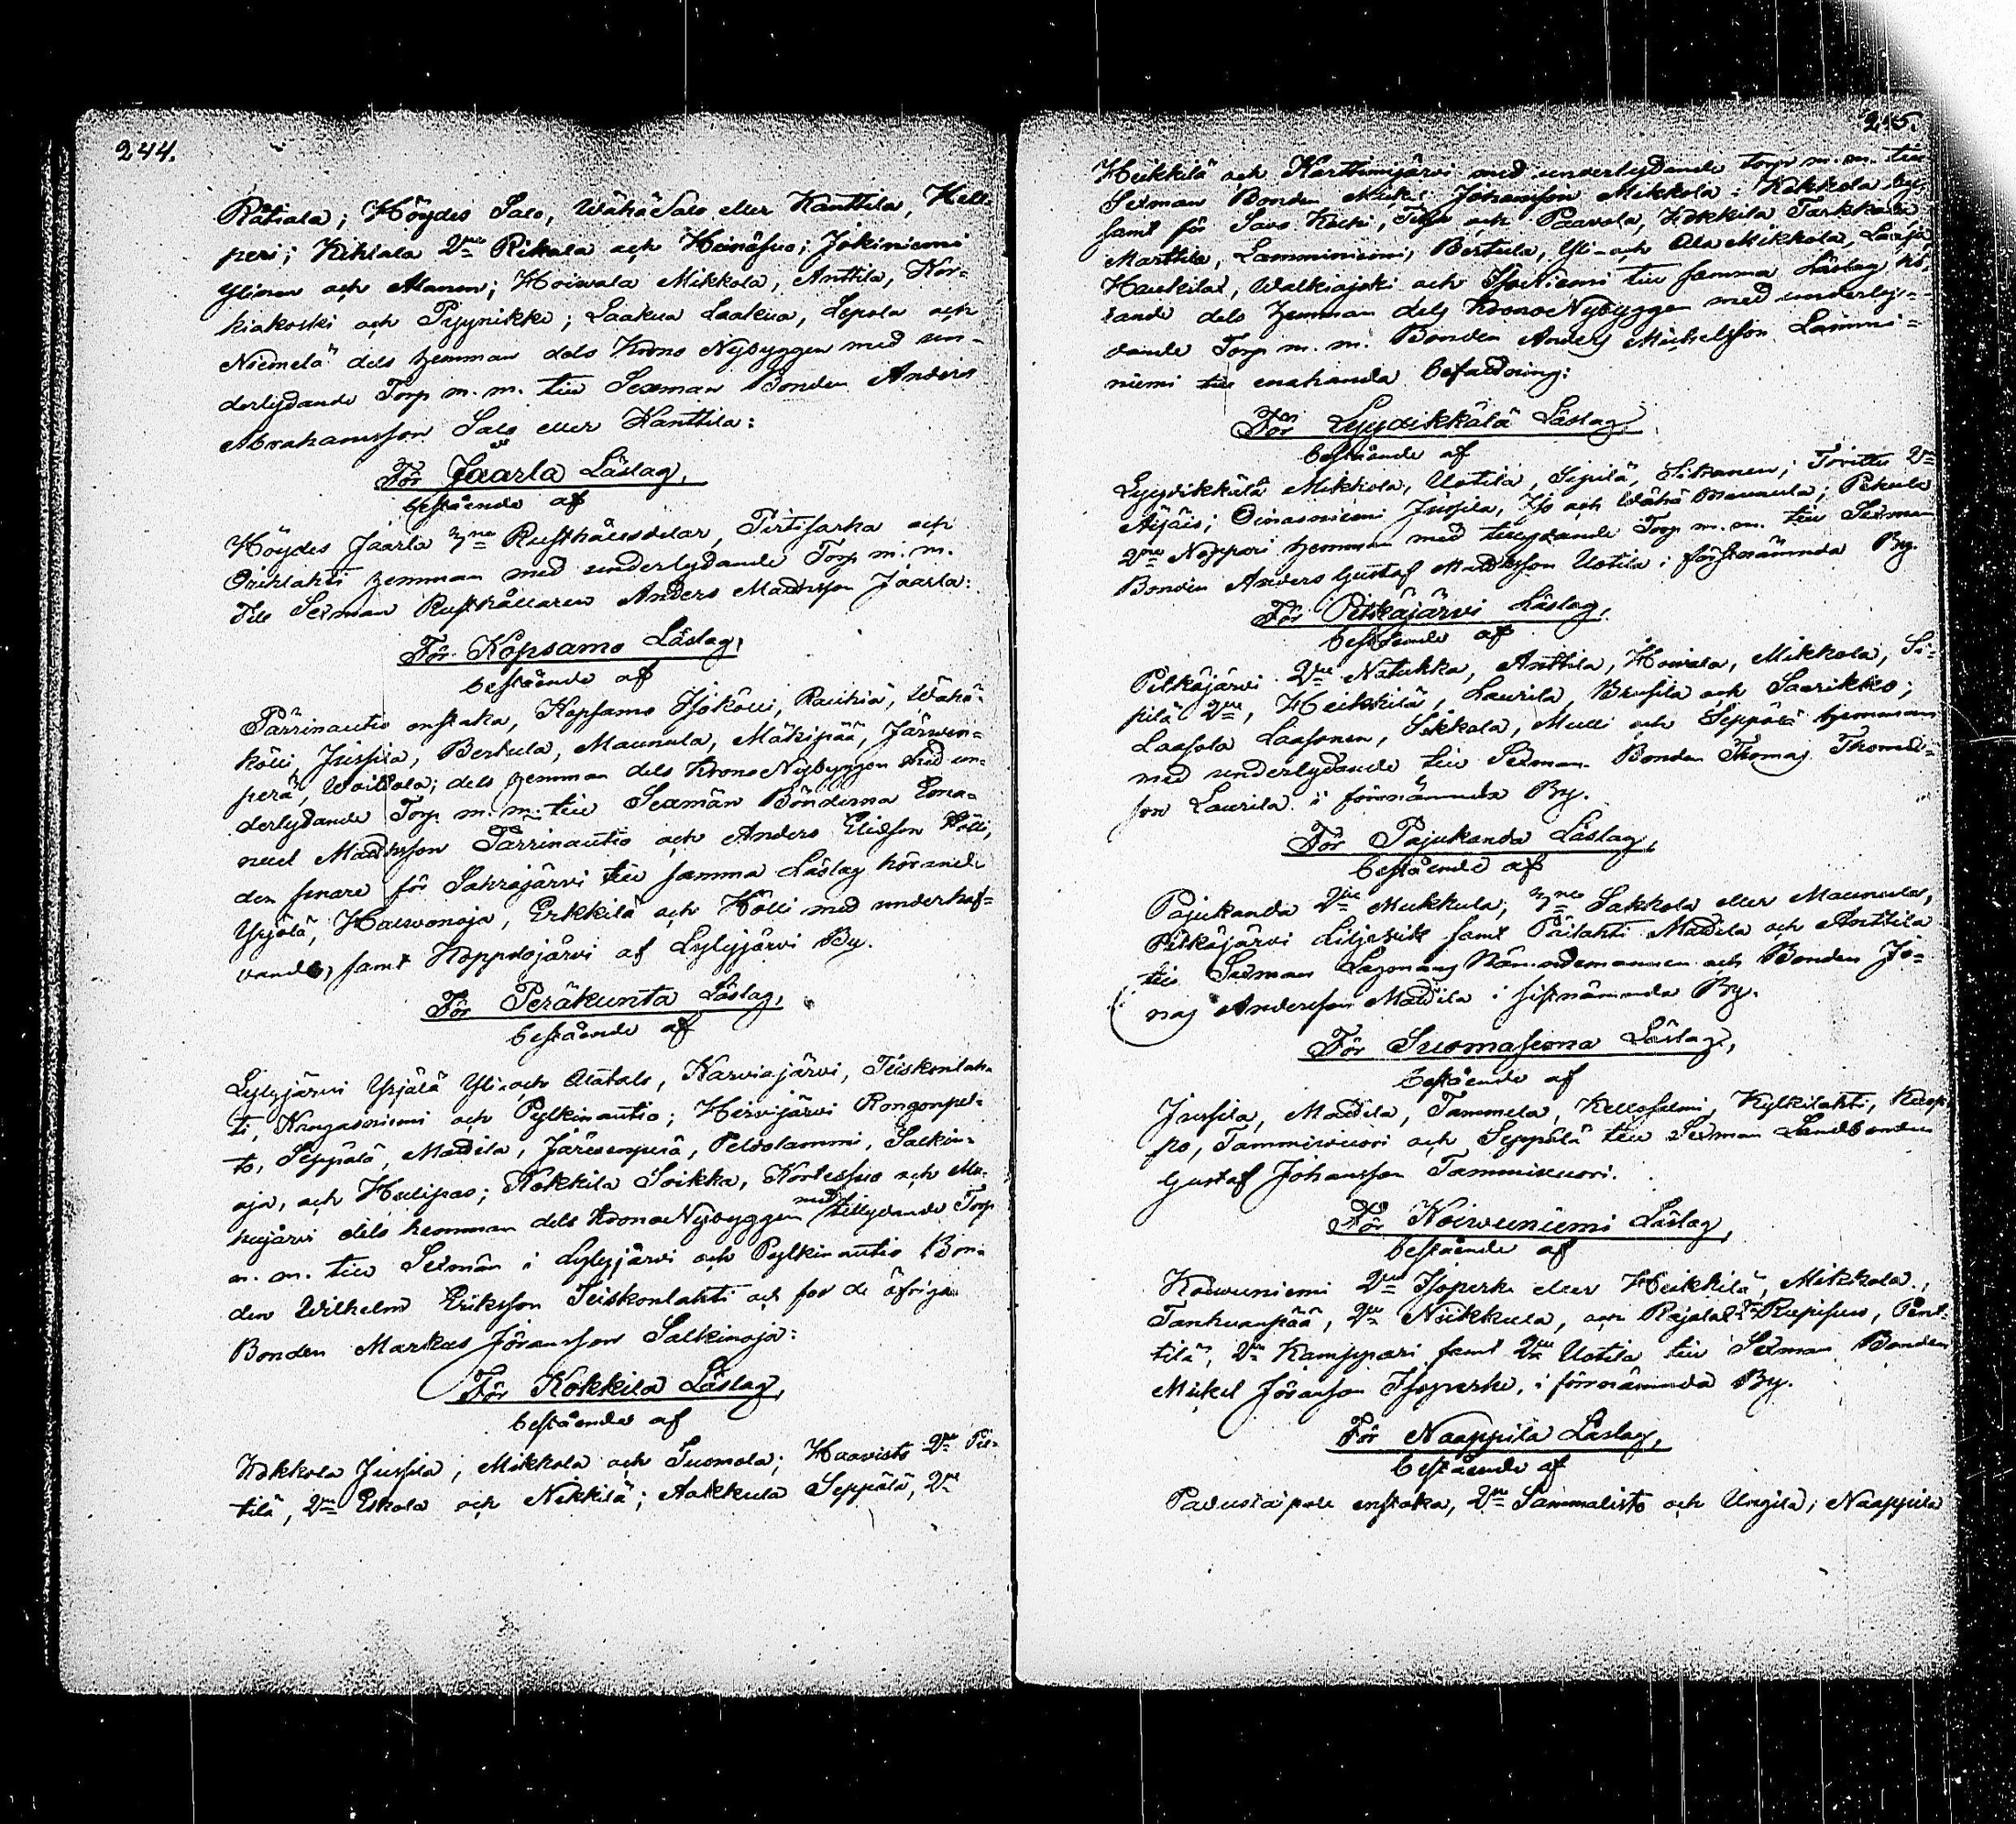 244.
Rätiala; Höydes Salo, Wähä Salo eller Kanttila, Helle
peri; Kihlala 2ne Rikala och Heinäsuo; Jokiniemi
Ylinen och Alanen; Hoiwala Mikkola, Anttila, Kor-
kiakoski och Pyynikki; Laakua Laakua, Lepola och
Niemelä dels hemman dels Krono Nybyggen med un-
derlydande Torp m. m. till Sexman Bonden Anders
Abrahamsson Salo eller Kanttila:
För Jaarla Läslag,
bestående af
Höydes Jaarla 3ne Rusthållsdelar, Pirtisarka och
Orihlahti hemman med underlydande Torp m. m.
till Sexman Rusthållaren Anders Mattsson Jaarla:
För Kopsamo Läslag,
bestående af
Parrinautio enstaka, Kopsamo Isokölli, Rauhia, Wähä-
kölli, Jussila, Bertula, Maunula, Mäkipää, Järwen-
perä, Woitola; dels hemman dels Krono Nybyggen med un-
derlydande Torp m. m. till Sexmän Bönderna Ema-
nuel Mattsson Parrinautio och Anders Eliasson Kölli,
den senare för Sahrajärvi till samma Läslag hörande
Yrjölä, Halwonoja, Erkkilä och Hölli med underhaf-
vande, samt Koppelojärvi af Lylyjärvi By.
För Peräkunta Läslag,
bestående af
Lylyjärvi Yrjälä Yli- och Alatalo, Karviajärvi, Teiskonlah-
ti, Kangasniemi och Pylkinautio; Hirvijärvi Rongonpel-
to, Seppälä, Mattila, Järwenperä, Peltolammi, Salkin-
oja, och Hulipas; Kokkila Soikka, Kortessuo och Mu-
hujärvi dels hemman dels Krono Nybyggen med tillydande Torp
m. m. till Sexmän i Lylyjärvi och Pylkinautio Bon-
den Wilhelm Eriksson Teiskonlahti och for de öfriga
Bonden Markus Jöransson Salkinoja:
För Kokkila Läslag,
bestående af
Kokkola Jussila, Mikkola och Tuomola; Haavisto 2ne Pil-
tilä, 2ne Eskola och Nikkilä; Aakkula Seppälä, 2ne
245.
Heikkilä och Karttimjärvi med underlydande torp m. m. till
Sexman Bonden Johansson Mikkola i Kokkola by,
samt för Savo Koski, och Paavola, Kokkila Tarkkala
Marttila, Lamminiemi, Bertula, Yli- och Ala Mikkola,
Haukilax, Walkiajoki och Isoniemi till samma Läslag hö-
rande dels hemman dels Krono Nybyggen med underly-
dande Torp m. m. Bonden Anders Michelsson Lammi-
niemi till enahanda befattning:
För Lyydikkälä Läslag,
bestående af
Lyydikkälä Mikkola, Uotila, Sipilä, Sikanen; Torittu 2ne
Äijäis; Oinasniemi Jussila, Iso och Wähä Maunula; Pekula
2ne Noppari hemman med tillydande Torp m. m. till Sexman
Bonden Anders Gustaf Mattsson Uotila i förstnämnda By.
För Pitkäjärvi Läslag,
bestående af
Pitkäjärvi 2ne Natukka, Anttila, Hoivala, Mikkola, Si-
pilä 2ne, Heikkilä, Laurila, Brusila och Saarikko;
Laasola Laasonen, Sikkala, Mulli och Seppälä hemman
med underlydande till Sexman Bonden Thomas Thomas-
son Laurila i förnämnda By.
För Pajukanda Läslag,
bestående af
Pajukanda 2ne Mukkula, 3ne Sakkola eller Maunula,
Pitkäjärvi Liljevik samt Päilahti Mattila och Anttila
till Sexman Nämndemannen och Bonden Jo-
nas Andersson Mattila i sistnämnda By.
För Suomasema Läslag,
bestående af
Jussila, Mattila, Tammela, Kellosalmi, Kylkilahti, Kaup-
po, Tammiwuori och Seppälä till Sexman Landbonden
Gustaf Johansson Tammiwuori.
För Koiwuniemi Läslag,
bestående af
Koiwuniemi 2ne Isoperhe eller Heikkilä, Mikkola,
Tanhuanpää, 2ne Nuikkula, och Rajala 2ne Rupisuo, Pent-
tilä, 2ne Kamppari samt 2ne Uotila till Sexman Bonden
Mickel Jöransson Isoperhe, i förnämnda By.
För Naappila Läslag,
bestående af
enstaka, 2ne Sammalisto och Ungila; Naappila